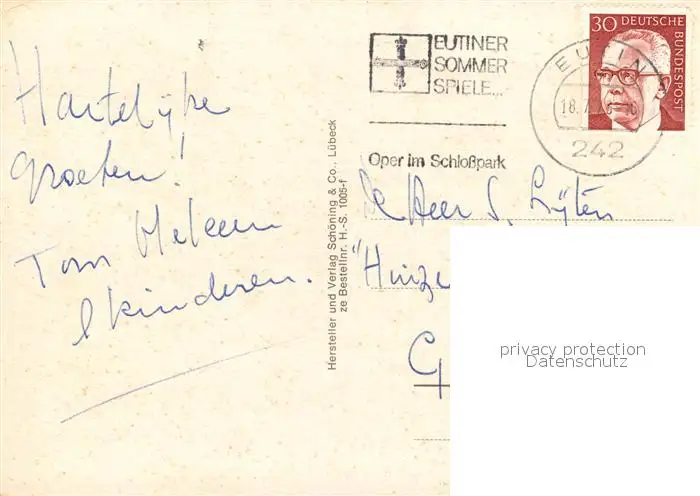 Hartelijke
groeten!
Tom Heleen
& kinderen.
Hersteller und Verlag Schöning & Co., Lübeck
ze Bestellnr. H.-S. 1005-f
EUTINER
SOMMER
SPIELE...
Oper im Schloßpark
EUTIN
18.7.
242
30 DEUTSCHE
BUNDESPOST
de Heer S.
"Huize
G
privacy protection
Datenschutz